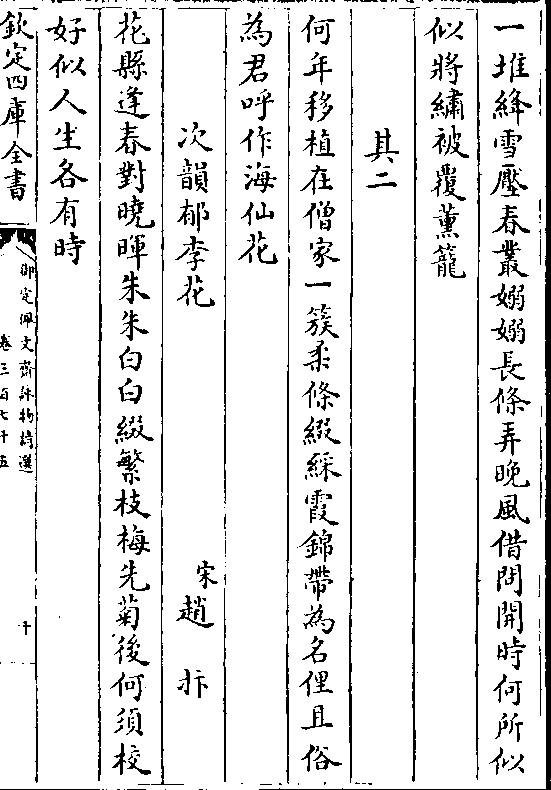 一堆絳雪壓春叢嫋嫋長條弄晚風借問開時何所似
似將繡被覆薰籠
其二
何年移植在僧家一簇柔條綴綵霞錦帶為名俚且俗
為君呼作海仙花
次韻郁李花 宋 趙 抃
花縣逢春對曉暉朱朱白白綴繁枝梅先菊後何須校
好似人生各有時
欽定四庫全書
御定佩文齋詠物詩選
卷三百七十五
十